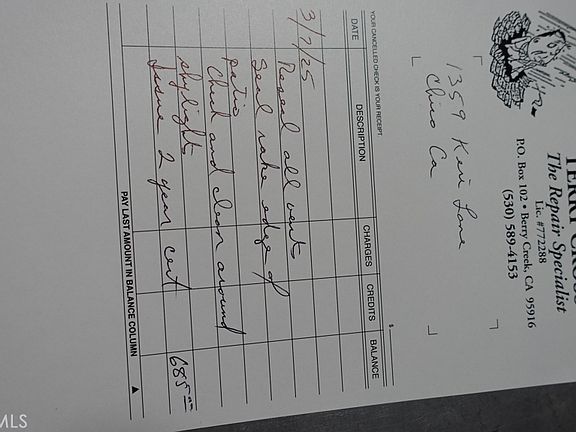 The Repair Specialist
Lic. #772288
P.O. Box 102 • Berry Creek, CA 95916
(530) 589-4153
1359 Keri Lane
Chico Ca
$
YOUR CANCELLED CHECK IS YOUR RECEIPT
DATE DESCRIPTION CHARGES CREDITS BALANCE
3/7/25
Reseal all vents
Seal rake edge of
patio
Check and clean around
skylight
Issue 2 year cert 685.00
PAY LAST AMOUNT IN BALANCE COLUMN
MLS